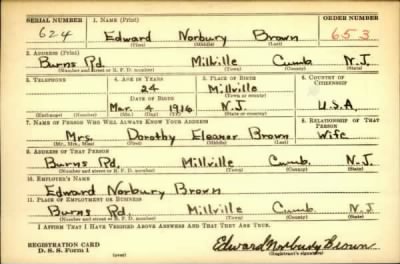 SERIAL NUMBER 1. NAME (Print) ORDER NUMBER
624 Edward Norbury Brown 653
(First) (Middle) (Last)
2. ADDRESS (Print)
Burns Rd. Millville Cumb. N.J.
(Number and street or R. F. D. number) (Town) (County) (State)
3. TELEPHONE 4. AGE IN YEARS 5. PLACE OF BIRTH 6. COUNTRY OF CITIZENSHIP
24 Millville
DATE OF BIRTH (Town or county)
Mar. 4 1916 N.J. U.S.A
(Exchange) (Number) (Mo.) (Day) (Yr.) (State or country)
7. NAME OF PERSON WHO WILL ALWAYS KNOW YOUR ADDRESS 8. RELATIONSHIP OF THAT PERSON
Mrs. Dorothy Eleanor Brown Wife
(Mr., Mrs., Miss) (First) (Middle) (Last)
9. ADDRESS OF THAT PERSON
Burns Rd. Millville Cumb. N.J.
(Number and street or R. F. D. number) (Town) (County) (State)
10. EMPLOYER'S NAME
Edward Norbury Brown
11. PLACE OF EMPLOYMENT OR BUSINESS
Burns Rd. Millville Cumb. N.J
(Number and street or R. F. D. number) (Town) (County) (State)
I AFFIRM THAT I HAVE VERIFIED ABOVE ANSWERS AND THAT THEY ARE TRUE.
REGISTRATION CARD
D. S. S. Form 1 (over) Edward Norbury Brown
(Registrant's signature)